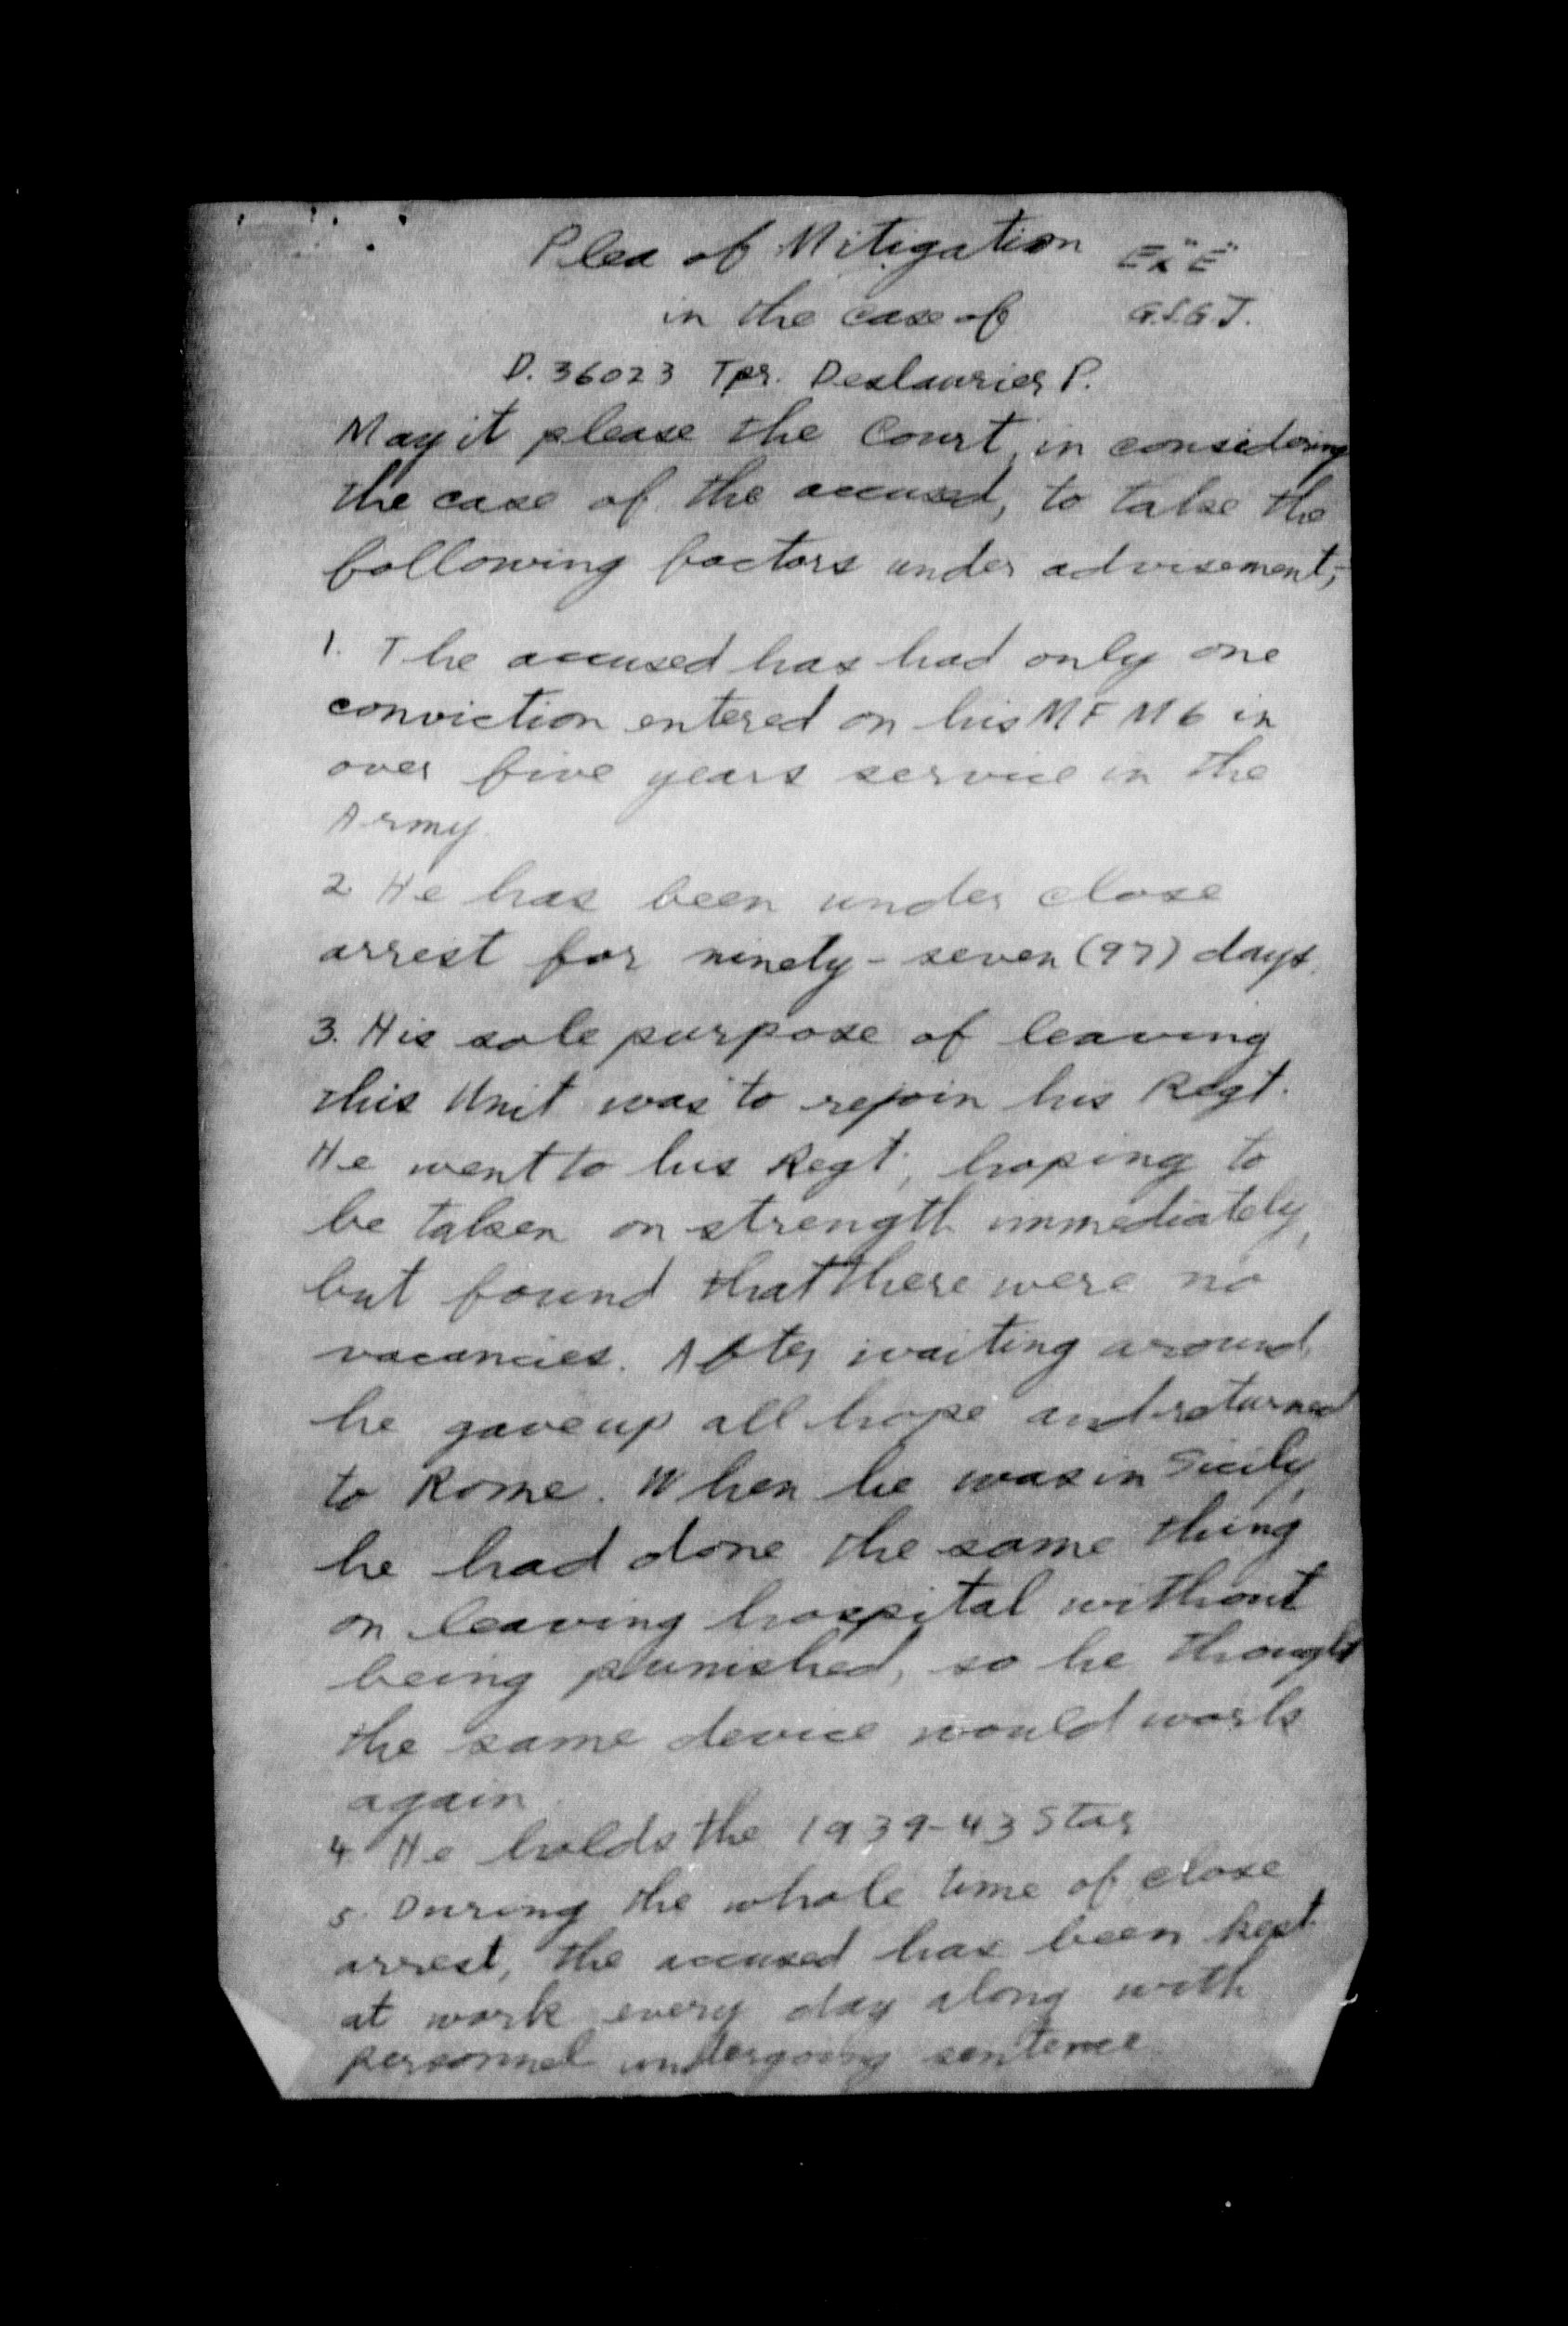 Plea of Mitigation Ex "E"
in the case of G.S.G.J.
D. 36023 Tpr. Deslaurier P.
May it please the Court, in considering
the case of the accused, to take the
following factors under advisement;-
1. The accused has had only one
conviction entered on his MFM6 in
over five years service in the
Army.
2. He has been under close
arrest for ninety-seven (97) days.
3. His sole purpose of leaving
this Unit was to rejoin his Regt.
He went to his Regt, hoping to
be taken on strength immediately,
but found that there were no
vacancies. After waiting around
he gave up all hope and returned
to Rome. When he was in Sicily,
he had done the same thing
on leaving hospital without
being punished, so he thought
the same device would work
again.
4. He holds the 1939-43 Star
5. During the whole time of close
arrest, the accused has been kept
at work every day along with
personnel undergoing sentence.